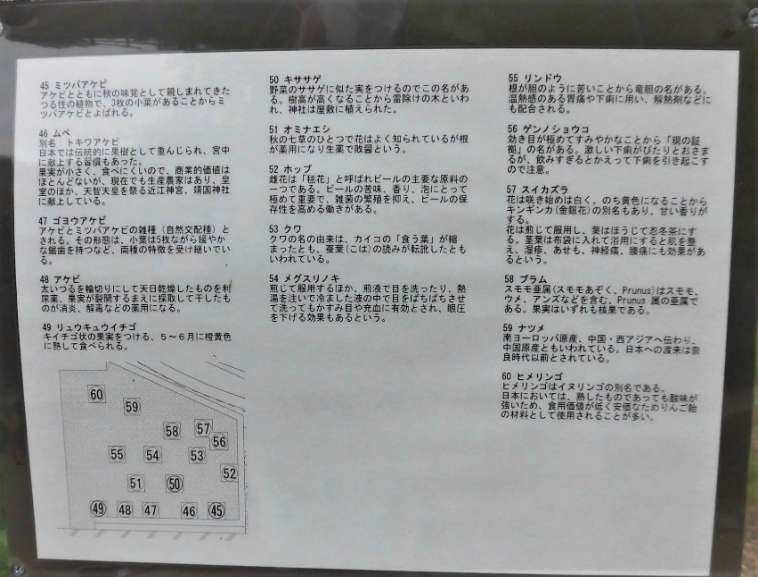 45 ミツバアケビ
アケビとともに秋の味覚として親しまれてきた
つる性の植物で、3枚の小葉があることからミ
ツバアケビとよばれる。
46 ムベ
別名：トキワアケビ
日本では伝統的に果樹として重んじられ、宮中
に献上する習慣もあった。
果実が小さく、食べにくいので、商業的価値は
ほとんどないが、現在でも生産農家はあり、皇
室のほか、天智天皇を祭る近江神宮、靖国神社
に献上している。
47 ゴヨウアケビ
アケビとミツバアケビの雑種（自然交配種）と
される。その形態は、小葉は5枚ながら緩やか
な鋸歯を持つなど、両種の特徴を受け継いでい
る。
48 アケビ
太いつるを輪切りにして天日乾燥したものを利
尿薬、果実が裂開するまえに採取して干したも
のが消炎、解毒などの薬用になる。
49 リュウキュウイチゴ
キイチゴ状の果実をつける、５～６月に橙黄色
に熟して食べられる。
50 キササゲ
野菜のササゲに似た実をつけるのでこの名があ
る。樹高が高くなることから雷除けの木といわ
れ、神社は屋敷に植えられた。
51 オミナエシ
秋の七草のひとつで花はよく知られているが根
が薬用になり生薬で敗醤という。
52 ホップ
雌花は「毬花」と呼ばれビールの主要な原料の
一つである。ビールの苦味、香り、泡にとって
極めて重要で、雑菌の繁殖を抑え、ビールの保
存性を高める働きがある。
53 クワ
クワの名の由来は、カイコの「食う葉」が縮
まったとも、蚕葉（こは）の読みが転訛したとも
いわれている。
54 メグスリノキ
煎じて服用するほか、煎液で目を洗ったり、熱
湯を注いで冷ました液の中で目をぱちぱちさせ
て洗ってもかすみ目や充血に有効とされ、眼圧
を下げる効果もあるという。
55 リンドウ
根が胆のように苦いことから竜胆の名がある。
温熱感のある胃痛や下痢に用い、解熱剤などに
も配合される。
56 ゲンノショウコ
効き目が極めてすみやかなことから「現の証
拠」の名がある。激しい下痢がぴたりとおさま
るが、飲みすぎるとかえって下痢を引き起こす
ので注意。
57 スイカズラ
花は咲き始めは白く、のち黄色になることから
キンギンカ(金銀花)の別名もあり、甘い香りが
する。
花は煎じて服用し、葉はほうじて忍冬茶にす
る。茎葉は布袋に入れて浴用にすると肌を整
え、湿疹、あせも、神経痛、腰痛にも効果があ
るという。
58 プラム
スモモ亜属(スモモあぞく、Prunus)はスモモ、
ウメ、アンズなどを含む、Prunus 属の亜属であ
る。果実はいずれも核果である。
59 ナツメ
南ヨーロッパ原産、中国・西アジアへ伝わり、
中国原産ともいわれている。日本への渡来は奈
良時代以前とされている。
60 ヒメリンゴ
ヒメリンゴはイヌリンゴの別名である。
日本においては、熟したものであっても酸味が
強いため、食用価値が低く安価なためりんご飴
の材料として使用されることが多い。
60
59
58
57
56
55
54
53
52
51
50
49
48
47
46
45